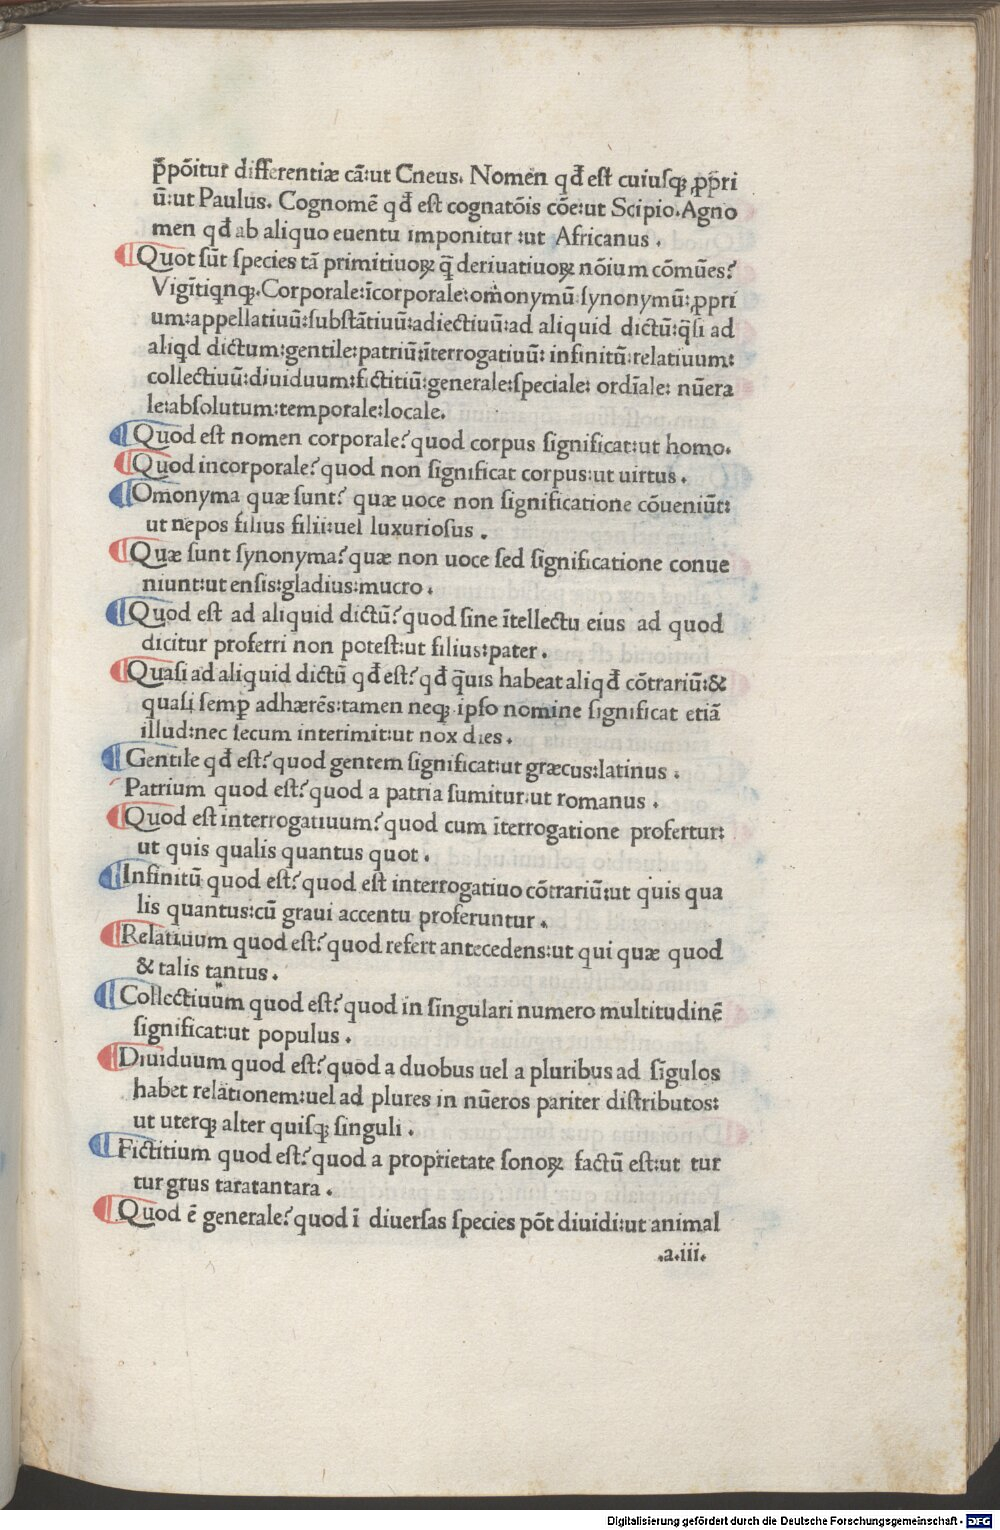 p̄põitur differentiæ cā:ut Cneus. Nomen qđ est cuiusqꝫ ꝓpri
ū:ut Paulus. Cognomē qđ est cognatõis cõe:ut Scipio. Agno
men qđ ab aliquo euentu imponitur :ut Africanus .
Quot sūt species tā primitiuoꝝ q̄ deriuatiuoꝝ nõium cõmūes?
Vigītiqnqꝫ. Corporale:īcorporale:omonymū:synonymū:ꝓpri
um:appellatiuū:substātiuū:adiectiuū:ad aliquid dictū:q̄si ad
aliqd dictum:gentile:patriū:īterrogatiuū: infinitū:relatiuum:
collectiuū:diuiduum:fictitiū:generale:speciale: ordīale: nūera
le:absolutum:temporale:locale.
Quod est nomen corporale? quod corpus significat:ut homo.
Quod incorporale? quod non significat corpus:ut uirtus .
Omonyma quæ sunt? quæ uoce non significatione cõueniūt:
ut nepos filius filii:uel luxuriosus .
Quæ sunt synonyma? quæ non uoce sed significatione conue
niunt:ut ensis:gladius:mucro .
Quod est ad aliquid dictū? quod sine ītellectu eius ad quod
dicitur proferri non potest:ut filius:pater .
Quasi ad aliquid dictū qđ est? qđ q̄uis habeat aliqđ cõtrariū:&
quasi semp̱ adhærēs:tamen neqꝫ ipso nomine significat etiā
illud:nec secum interimit:ut nox dies .
Gentile qđ est? quod gentem significat:ut græcus:latinus .
Patrium quod est? quod a patria sumitur:ut romanus .
Quod est interrogatiuum? quod cum īterrogatione profertur:
ut quis qualis quantus quot .
Infinitū quod est? quod est interrogatiuo cõtrariū:ut quis qua
lis quantus:cū graui accentu proferuntur .
Relatiuum quod est? quod refert antecedens:ut qui quæ quod
& talis tantus .
Collectiuum quod est? quod in singulari numero multitudinē
significat:ut populus .
Diuiduum quod est? quod a duobus uel a pluribus ad sīgulos
habet relationem:uel ad plures in nūeros pariter distributos:
ut uterqꝫ alter quisqꝫ singuli .
Fictitium quod est? quod a proprietate sonoꝝ factū est:ut tur
tur grus taratantara .
Quod ē generale? quod ī diuersas species põt diuidi:ut animal
.a.iii.
Digitalisierung gefördert durch die Deutsche Forschungsgemeinschaft - DFG